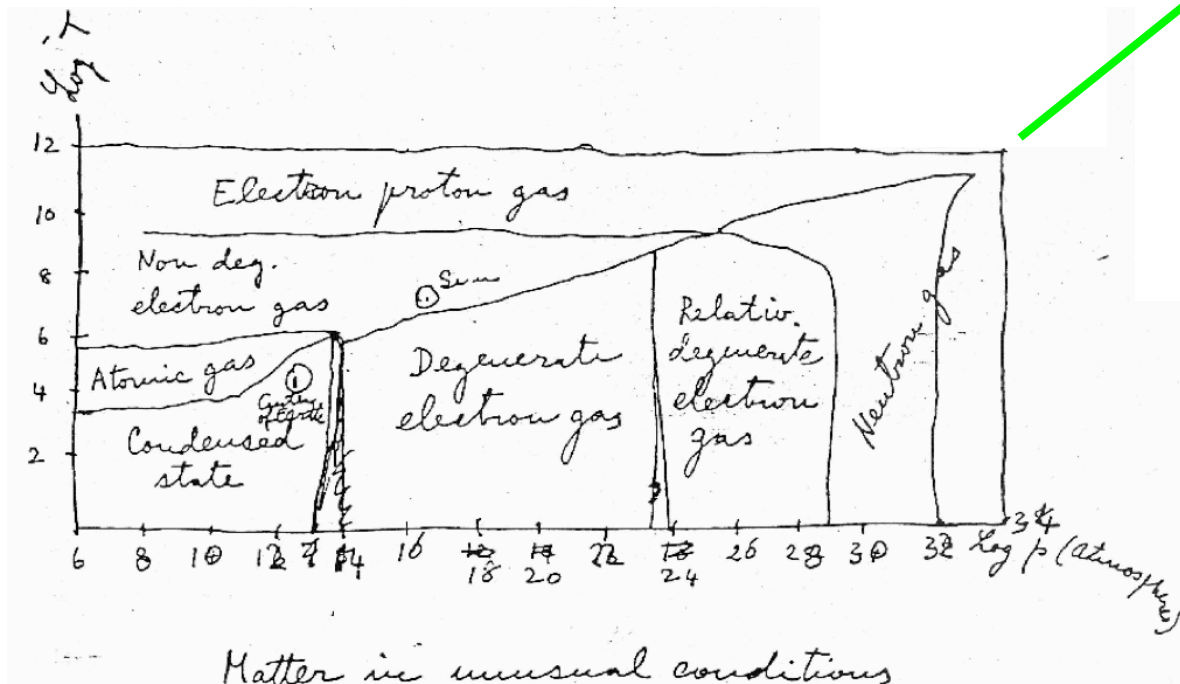 Log T
12
Electron proton gas
10
Non deg.
electron gas
8
Sun
6
Atomic gas
4
Center
of Earth
Condensed
state
2
Degenerate
electron gas
Relativ.
degenerate
electron
gas
Neutron gas
6 8 10 12 14 16 18 20 22 24 26 28 30 32 34
Log p (atmospheres)
Matter in unusual conditions